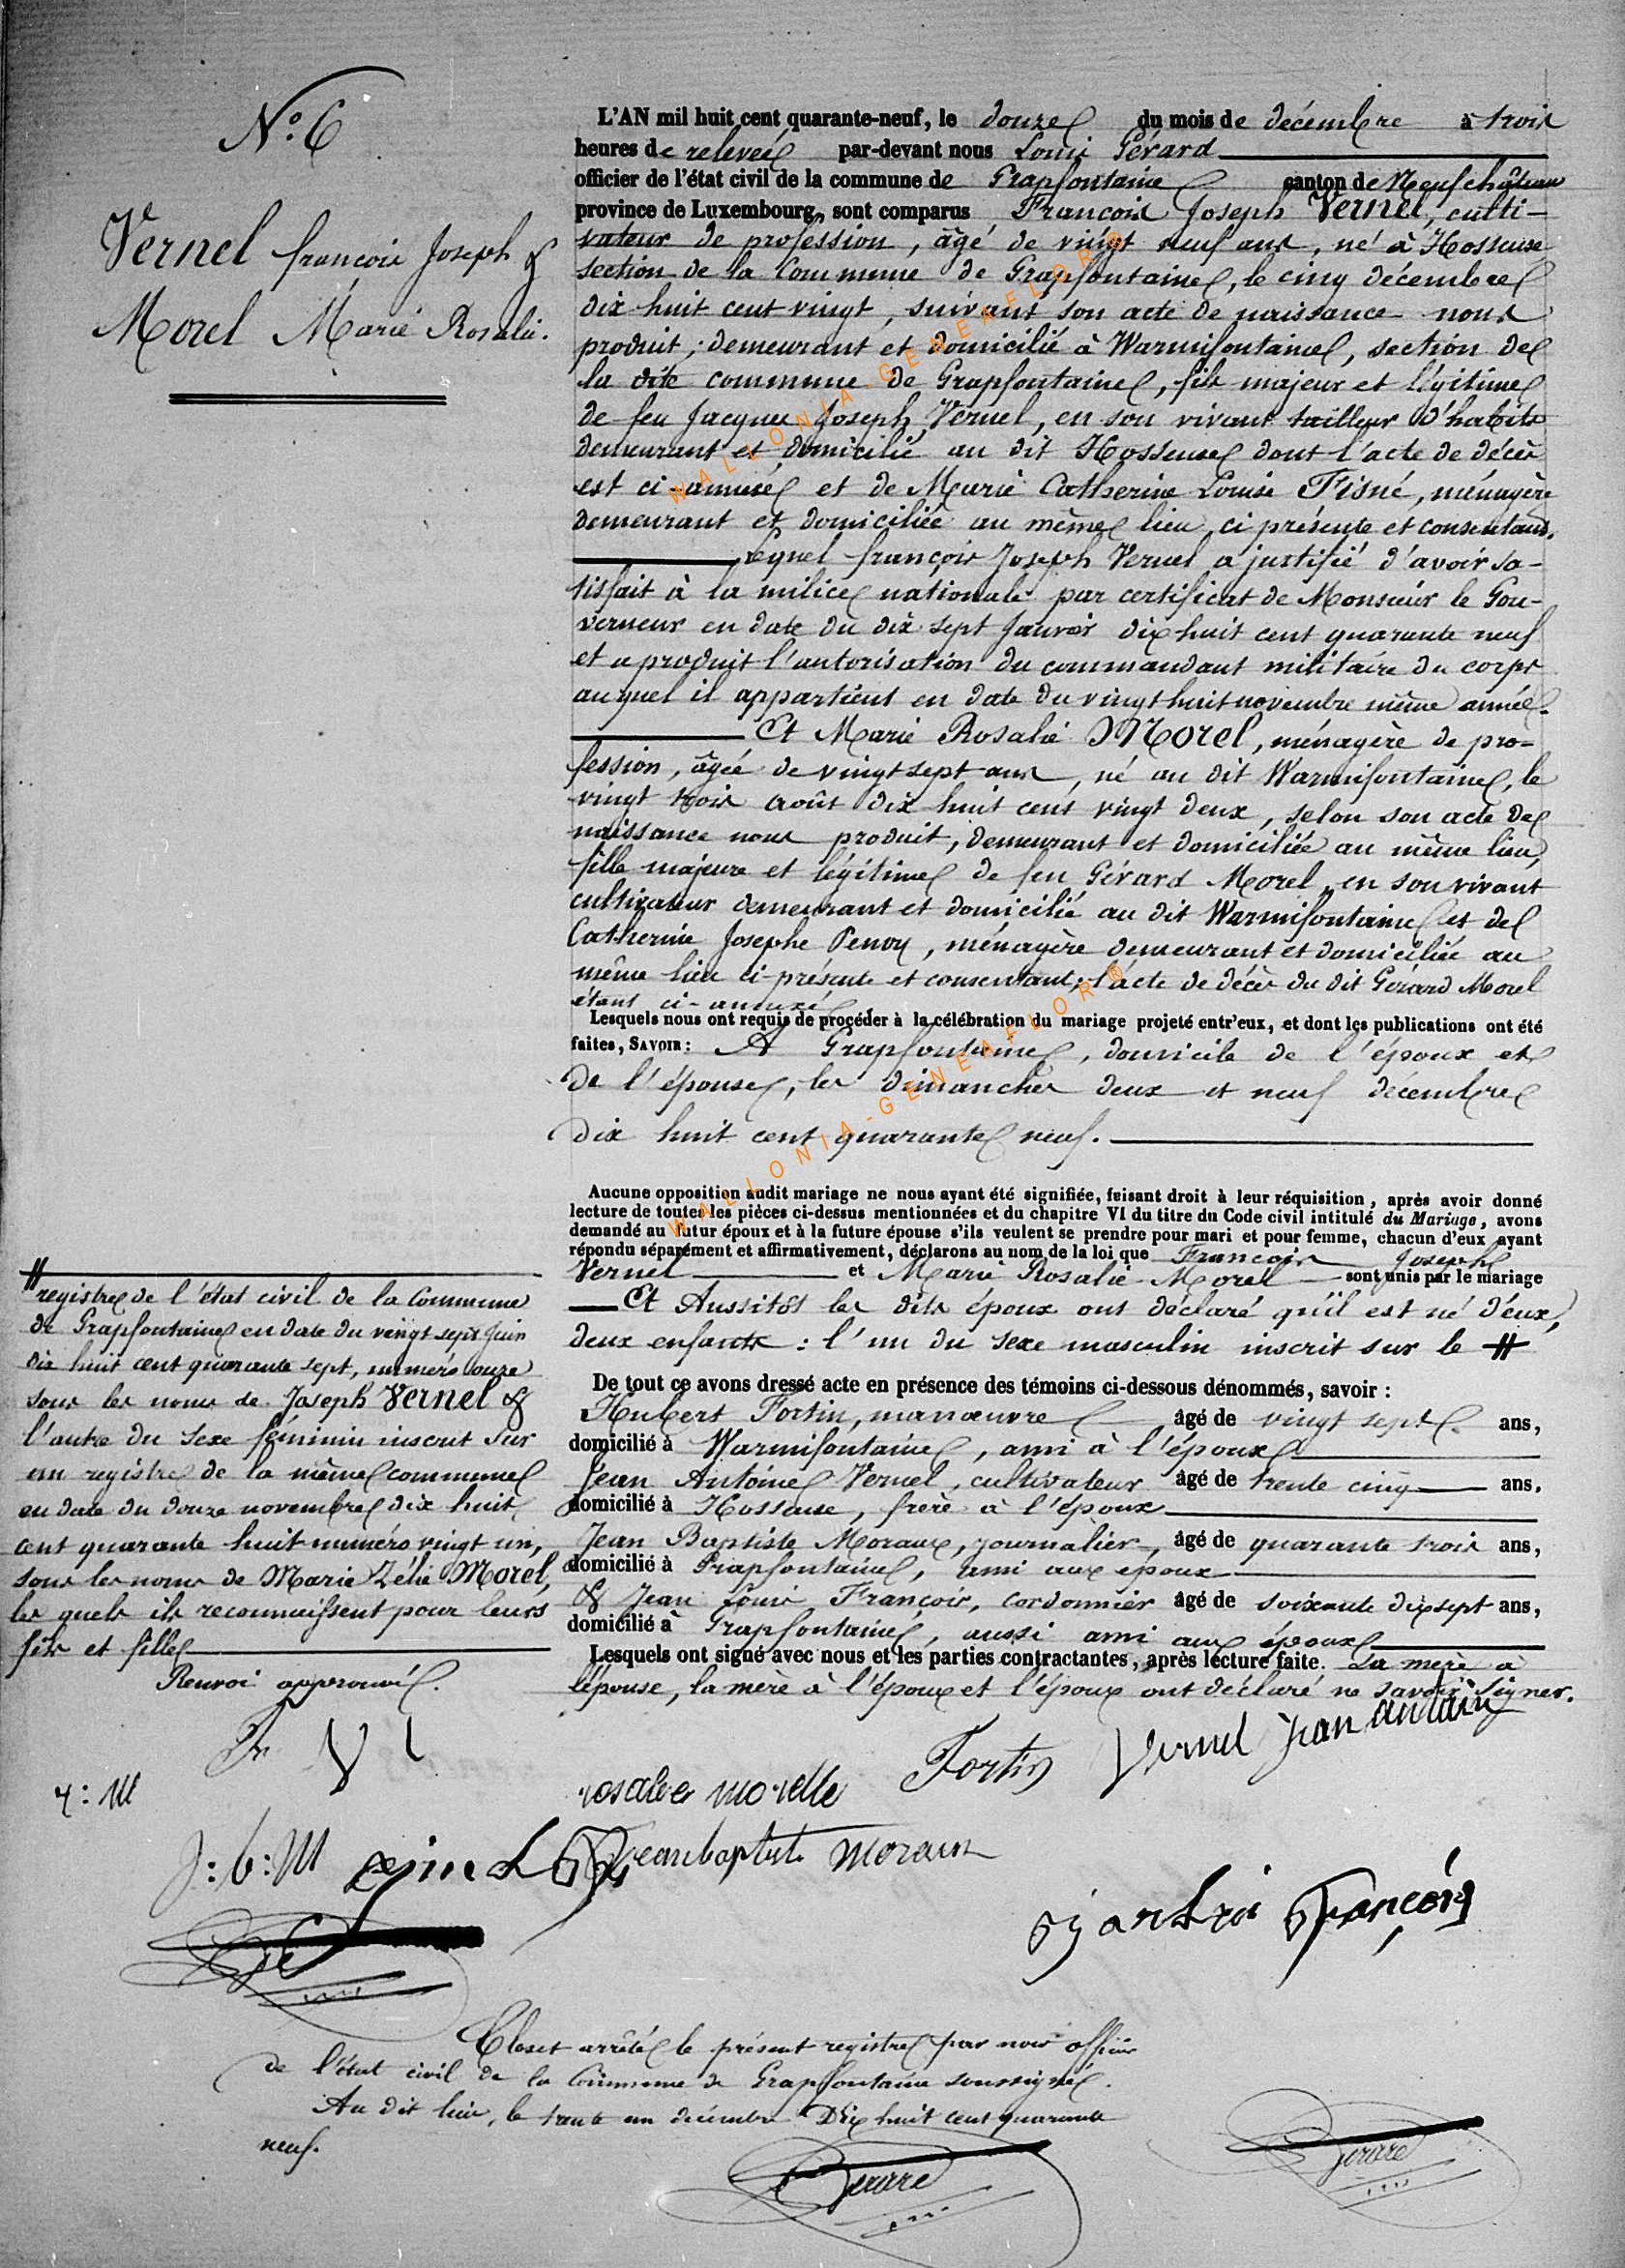 N.º 6
Vernel françois Joseph &
Morel Marie Rosalie.
L'AN mil huit cent quarante-neuf, le douze du mois de décembre à trois
heures de relevée par-devant nous Louis Gérard
officier de l'état civil de la commune de Grapfontaine canton de Neufchâteau
province de Luxembourg, sont comparus François Joseph Vernel, culti-
vateur de profession, âgé de vingt neuf ans, né à Hosseuse
section de la Commune de Grapfontaine, le cinq décembre
dix huit cent vingt, suivant son acte de naissance nous
produit; demeurant et domicilié à Warmifontaine, section de
la dite commune de Grapfontaine, fils majeur et légitime
de feu Jacques Joseph Vernel, en son vivant tailleur d'habits
demeurant et domicilié au dit Hosseuse dont l'acte de décès
est ci-annexé et de Marie Catherine Louise Fisné, ménagère
demeurant et domiciliée au même lieu, ci présente et consentant.
lequel françois Joseph Vernel a justifié d'avoir sa-
tisfait à la milice nationale par certificat de Monsieur le Gou-
verneur en date du dix sept Janvier dix huit cent quarante neuf
et a produit l'autorisation du commandant militaire du corps
auquel il appartient en date du vingt huit novembre même année.
Et Marie Rosalie Morel, ménagère de pro-
fession, âgée de vingt sept ans, né au dit Warmifontaine, le
vingt trois août dix huit cent vingt deux, selon son acte de
naissance nous produit, demeurant et domiciliée au même lieu,
fille majeure et légitime de feu Gérard Morel, en son vivant
cultivateur demeurant et domicilié au dit Warmifontaine et de
Catherine Josephe Penoy, ménagère demeurant et domiciliée au
même lieu ci-présente et consentant; l'acte de décès du dit Gérard Morel
étant ci-annexé
Lesquels nous ont requis de procéder à la célébration du mariage projeté entr'eux, et dont les publications ont été
faites, SAVOIR: A Grapfontaine, domicile de l'époux et
de l'épouse, les dimanches deux et neuf décembre
dix huit cent quarante neuf.
Aucune opposition audit mariage ne nous ayant été signifiée, faisant droit à leur réquisition, après avoir donné
lecture de toutes les pièces ci-dessus mentionnées et du chapitre VI du titre du Code civil intitulé du Mariage, avons
demandé au futur époux et à la future épouse s'ils veulent se prendre pour mari et pour femme, chacun d'eux ayant
répondu séparément et affirmativement, déclarons au nom de la loi que François Joseph
Vernel et Marie Rosalie Morel sont unis par le mariage
Et Aussitôt les dits époux ont déclaré qu'il est né d'eux,
deux enfants : l'un du sexe masculin inscrit sur le #
# registre de l'état civil de la Commune
de Grapfontaine en date du vingt sept Juin
dix huit cent quarante sept, numéro onze
sous les noms de Joseph Vernel &
l'autre du sexe féminin inscrit sur
un registre de la même commune
en date du douze novembre dix huit
cent quarante huit numéro vingt un,
sous les noms de Marie Zélie Morel,
les quels ils reconnaissent pour leurs
fils et fille
Renvoi approuvé.
De tout ce avons dressé acte en présence des témoins ci-dessous dénommés, savoir :
Hubert Fortin, manœuvre âgé de vingt sept ans,
domicilié à Warmifontaine, ami à l'époux
Jean Antoine Vernel, cultivateur âgé de trente cinq ans.
domicilié à Hosseuse, frère à l'époux
Jean Baptiste Moraux, journalier, âgé de quarante trois ans,
domicilié à Grapfontaine, ami aux époux
& Jean Louis François, cordonnier âgé de soixante dix sept ans,
domicilié à Grapfontaine, aussi ami aux époux
Lesquels ont signé avec nous et les parties contractantes, après lecture faite. La mère à
l'épouse, la mère à l'époux et l'époux ont déclaré ne savoir signer.
Fr V J
r: M
rosalie morelle Fortin Vernel jean antoin
J: b: M jeanbaptiste Moraux
François
Clos et arrêté le présent registre par nous officier
de l'état civil de la Commune de Grapfontaine soussigné.
Au dit lieu, le trente un décembre Dix huit cent quarante
neuf.
Gérard
Gérard
WALLONIA-GENEAFLOR®
WALLONIA-GENEAFLOR®